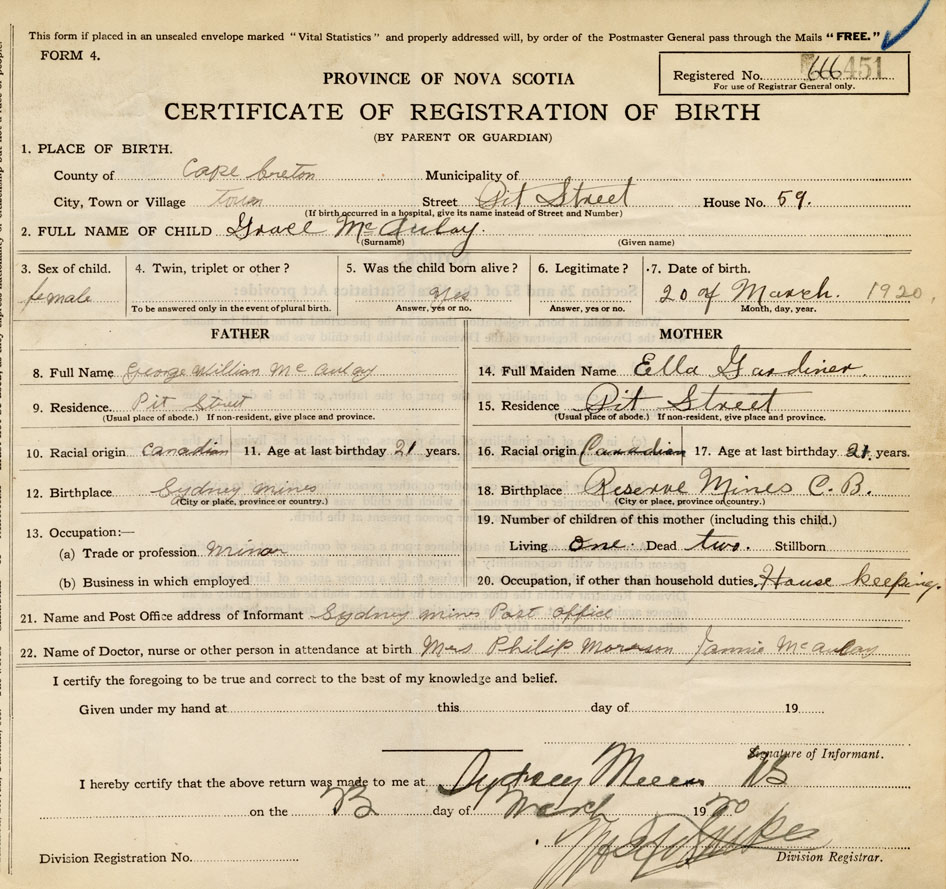 This form if placed in an unsealed envelope marked "Vital Statistics" and properly addressed will, by order of the Postmaster General pass through the Mails "FREE."
FORM 4.
PROVINCE OF NOVA SCOTIA
Registered No. 451
For use of Registrar General only.
CERTIFICATE OF REGISTRATION OF BIRTH
(BY PARENT OR GUARDIAN)
1. PLACE OF BIRTH.
County of Cape breton Municipality of
City, Town or Village town Street Pit Street House No. 59.
(If birth occurred in a hospital, give its name instead of Street and Number)
2. FULL NAME OF CHILD Grace McAulay.
(Surname) (Given name)
3. Sex of child. 4. Twin, triplet or other? 5. Was the child born alive? 6. Legitimate? 7. Date of birth.
female yes 20 of March. 1920.
To be answered only in the event of plural birth. Answer, yes or no. Answer, yes or no. Month, day, year.
FATHER MOTHER
8. Full Name George William McAulay 14. Full Maiden Name Ella Gardiner.
9. Residence. Pit Street 15. Residence Pit Street
(Usual place of abode.) If non-resident, give place and province. (Usual place of abode.) If non-resident, give place and province.
10. Racial origin canadian 11. Age at last birthday 21 years. 16. Racial origin Canadian 17. Age at last birthday 21. years.
12. Birthplace Sydney mines 18. Birthplace Reserve Mines C.B.
(City or place, province or country.) (City or place, province or country.)
13. Occupation:— 19. Number of children of this mother (including this child.)
(a) Trade or profession minor Living one. Dead two. Stillborn
(b) Business in which employed 20. Occupation, if other than household duties, House keeping.
21. Name and Post Office address of Informant Sydney mines Post office
22. Name of Doctor, nurse or other person in attendance at birth Mrs Philip McAulay
I certify the foregoing to be true and correct to the best of my knowledge and belief.
Given under my hand at this day of 19
Signature of Informant.
I hereby certify that the above return was made to me at Sydney Mines
on the day of March 1920
Division Registration No. Division Registrar.